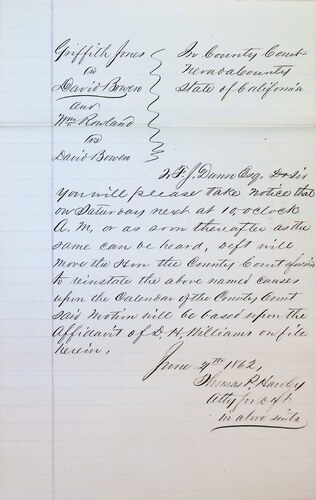 Griffith Jones
vs
David Bowen
and
Wm Rowland
vs
David Bowen
In County Court
Nevada County
State of California
To F. J. Dunn Esq. Dr Sir
You will please take notice that
on Saturday next at 10, oclock
A. M, or as soon thereafter as the
same can be heard, Deft will
move the Hon the County Court
to reinstate the above named causes
upon the Calendar of the County Court
said Motion will be based upon the
Affidavit of D. H. Williams on file
herein,
June 4th 1862,
Thomas P. Hawley
Atty for Deft
in above suits